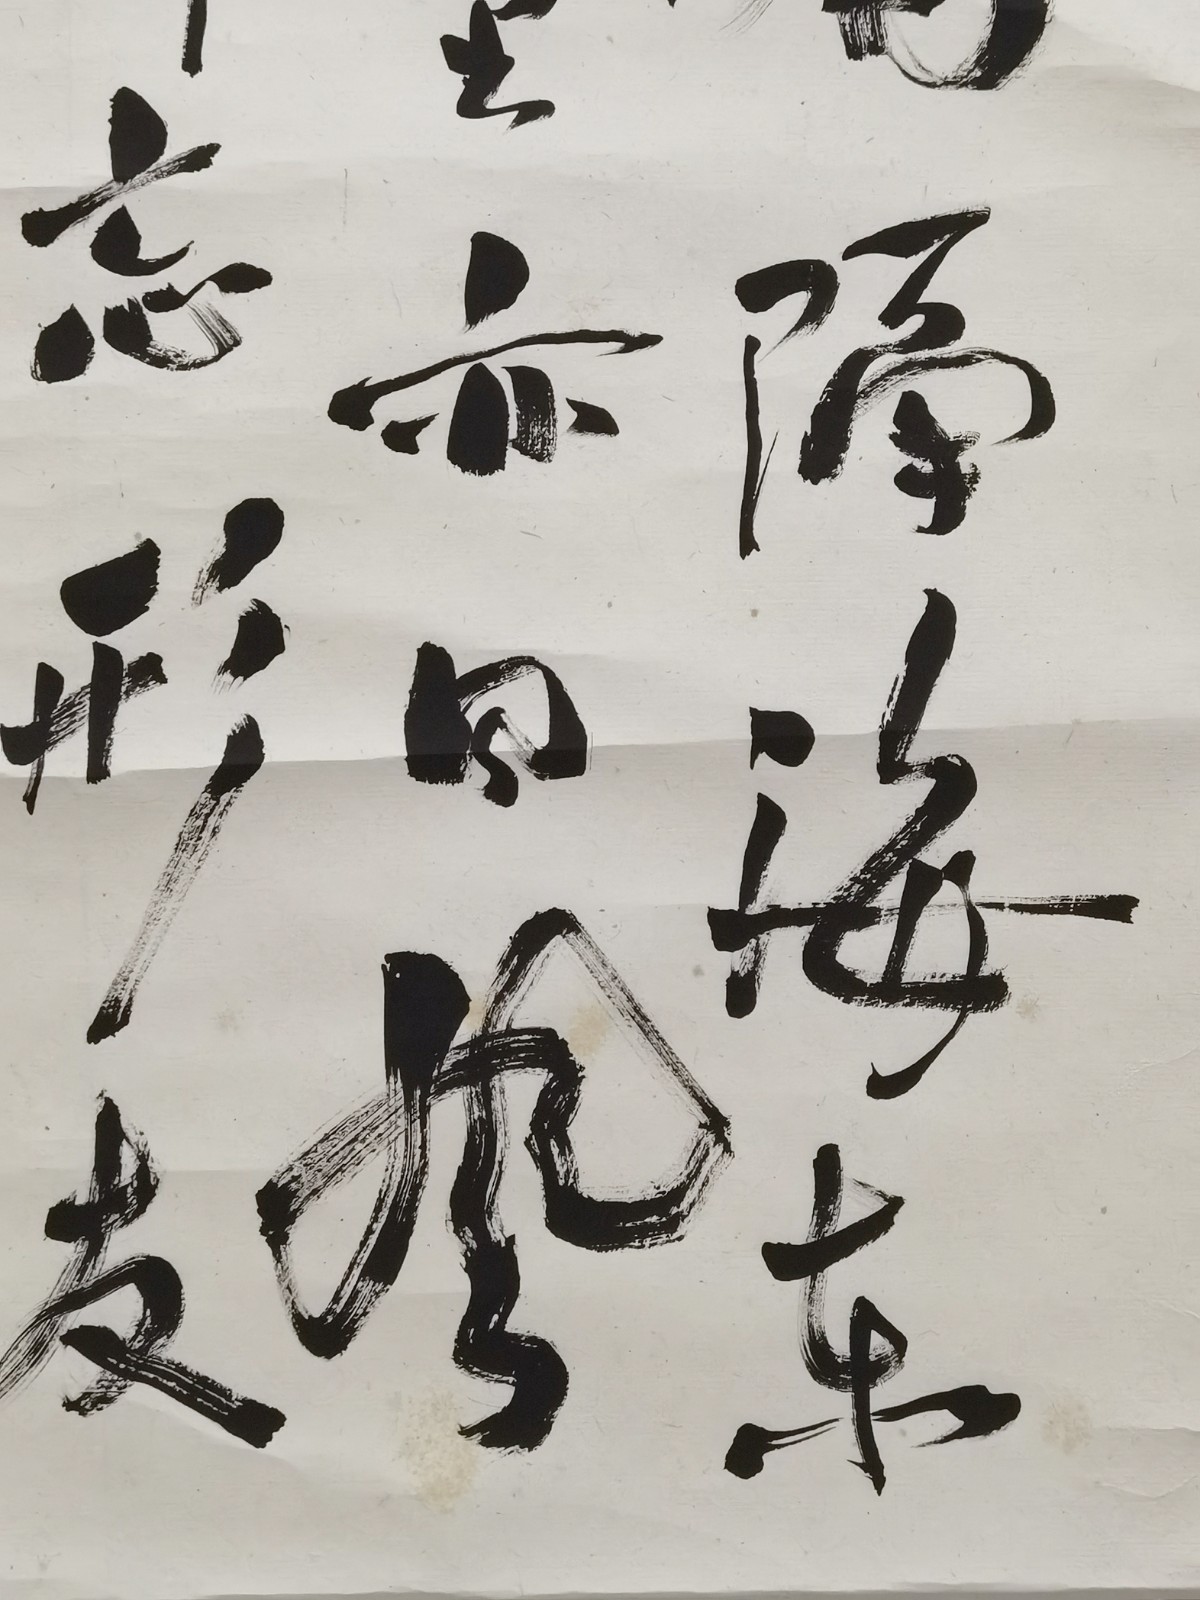 隔海東
亦同風
忘形友